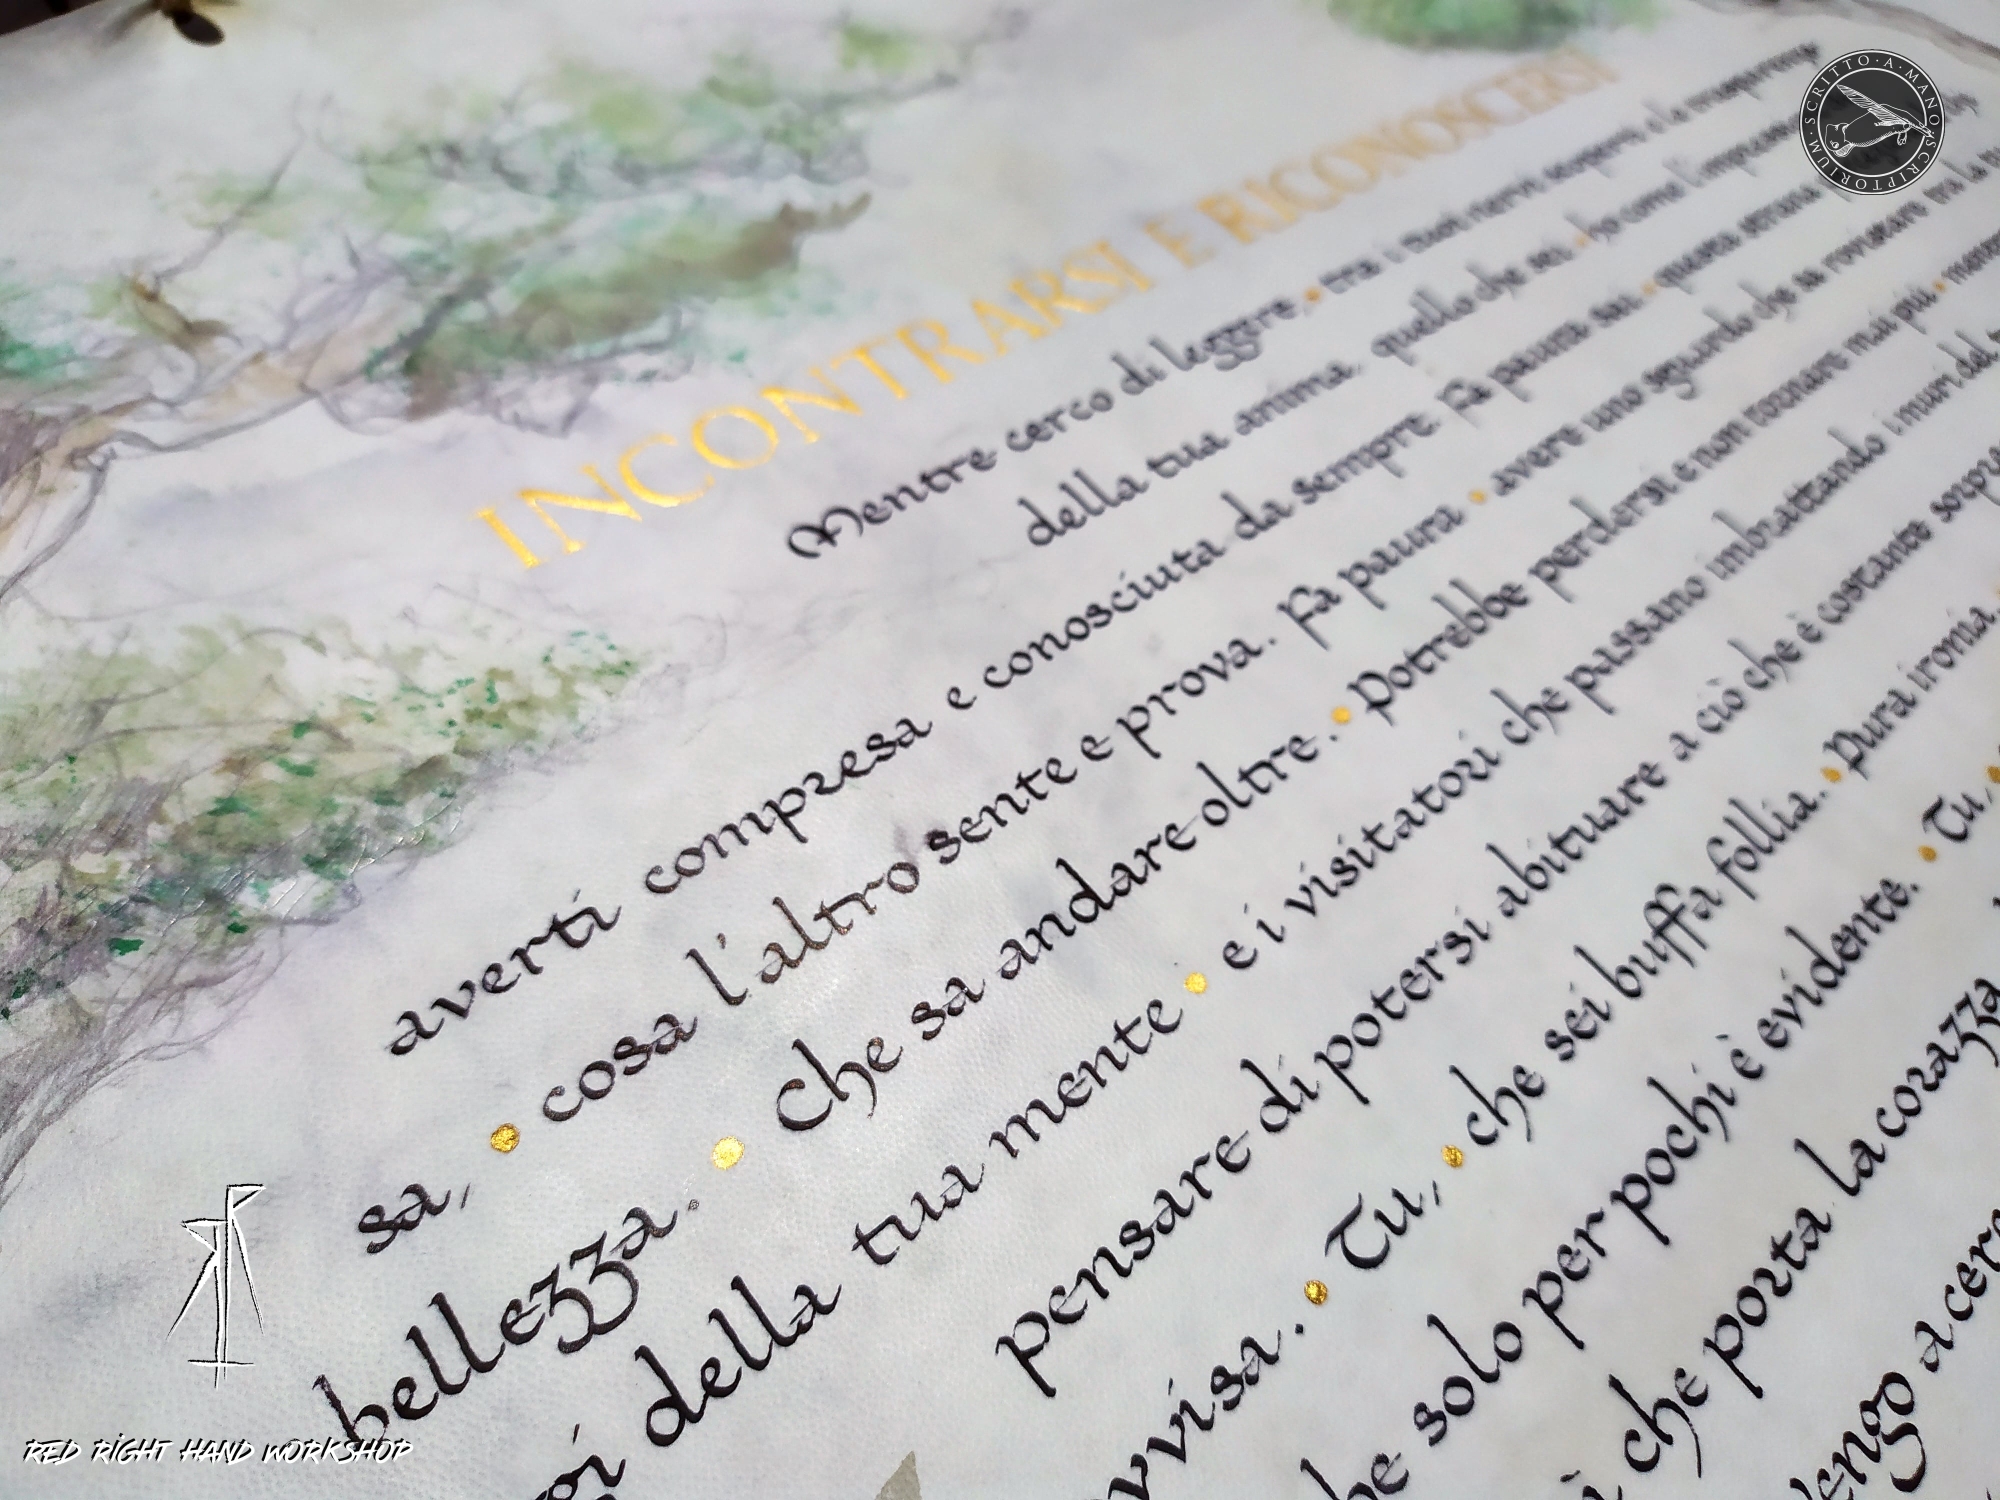 INCONTRARSI E RICONOSCERSI
Mentre cerco di leggere, • tra i tuoi nervi scoperti e la trasparenza
della tua anima, quello che sei • ho come
averti compresa e conosciuta da sempre. Fa paura sai • questa strana
sa, • cosa l'altro sente e prova. Fa paura • avere uno sguardo che sa rovistare tra la
bellezza. • Che sa andare oltre. • Potrebbe perdersi e non tornare mai più •
della tua mente • e i visitatori che passano imbrattando i muri del
pensare di potersi abituare a ciò che è costante
vvisa. • Tu, • che sei buffa follia. • Pura ironia.
he solo per pochi è evidente. • Tu,
che porta la corazza
engo a cer
SCRITTO·A·MANO·SCRIPTORIUM·
RED RIGHT HAND WORKSHOP